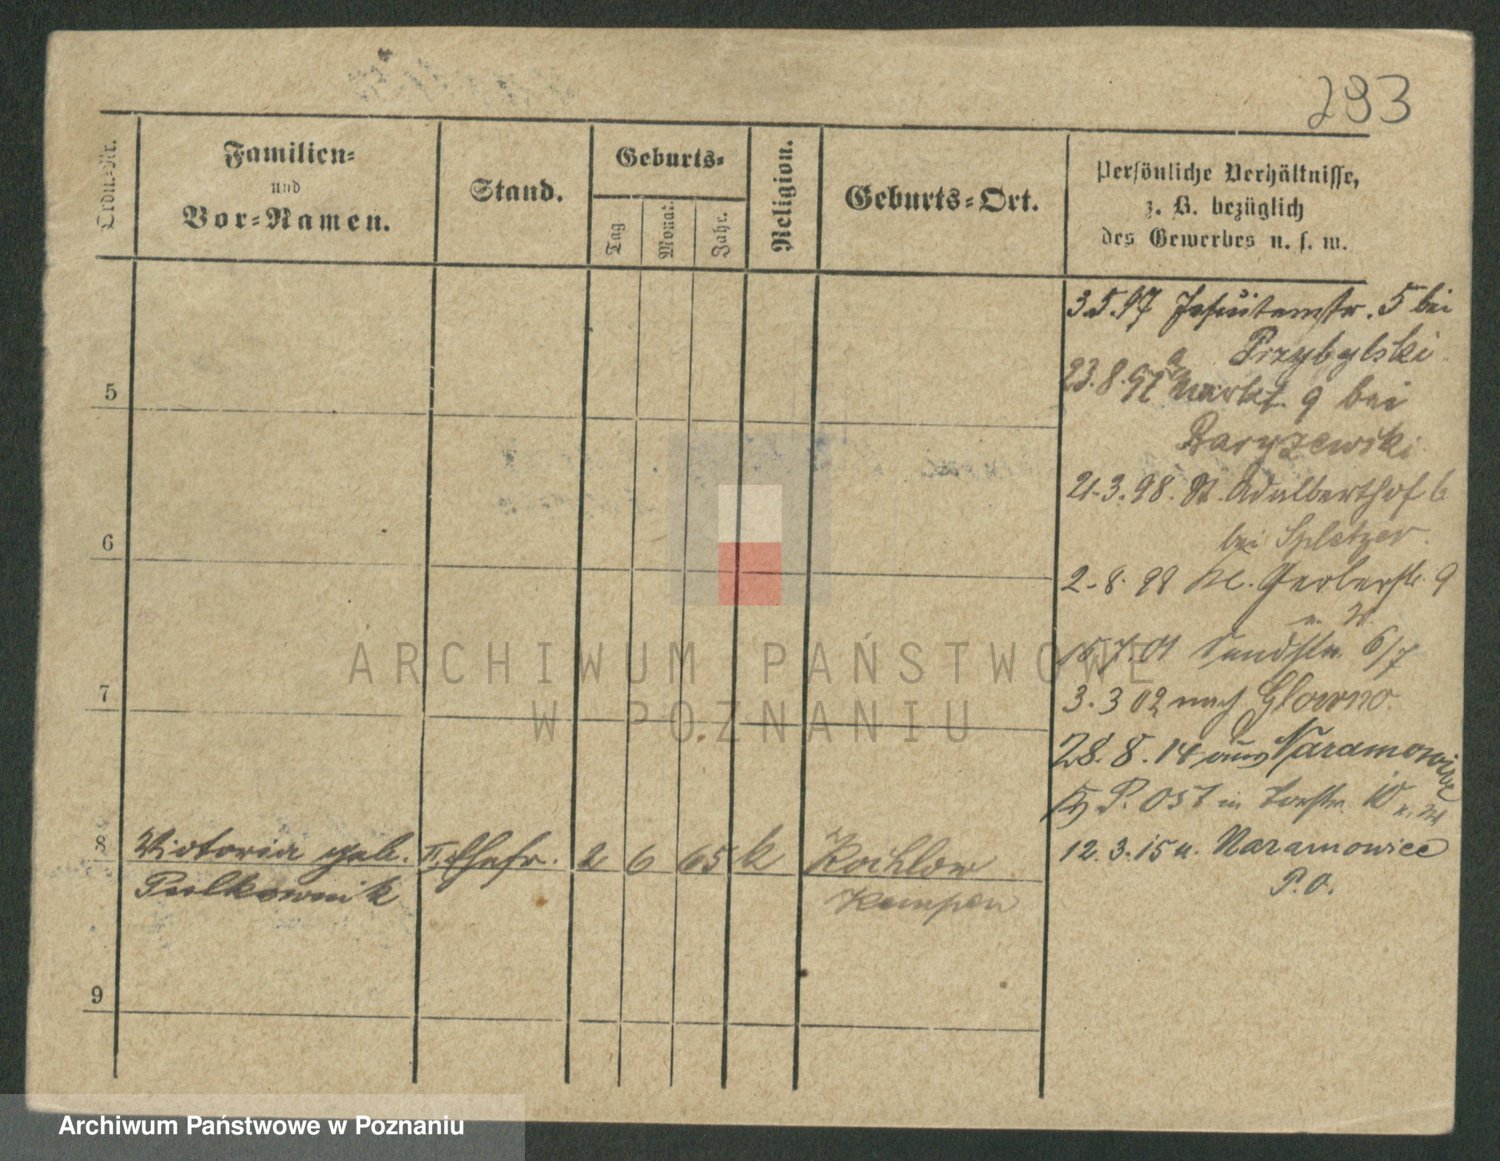 293
Ordn.-Nr.
Familien-
und
Vor-Namen.
Stand.
Geburts-
Tag
Monat.
Jahr.
Religion.
Geburts-Ort.
Persönliche Verhältnisse,
z. B. bezüglich
des Gewerbes u. s. w.
3.5.97 Jesuitenstr. 5 bei
Przybylski
23.8.97 Markt 9 bei
21.3.98. St. Adalberthof 6
bei
2.8.98 Kl. Gerberstr. 9
15.7.01 Sandstr. 6/7
3.3 02 nach Glowno.
28.8.14 aus Naramowice
P. Ost
12.3.15 n. Naramowice
P.O.
5
6
7
8
Victoria geb. II. Ehefr. 2 6 65 k Kochlow
Pulkownik Kempen
9
ARCHIWUM PAŃSTWOWE
W POZNANIU
Archiwum Państwowe w Poznaniu